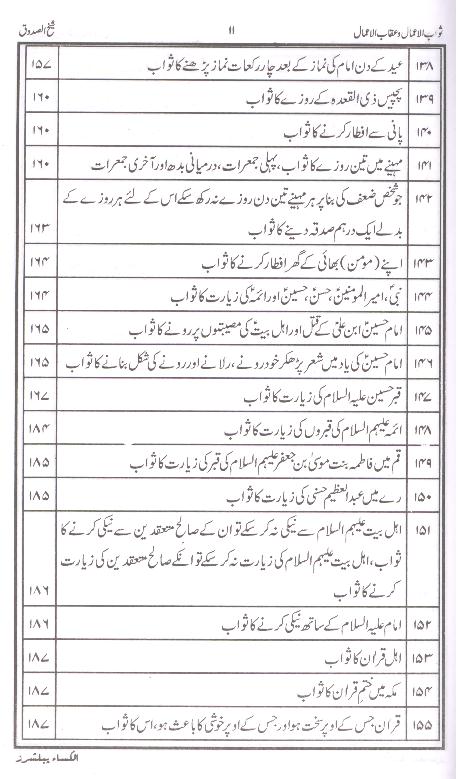 ثواب الاعمال و عقاب الاعمال ۱۱ شیخ الصدوق
۱۳۸ عید کے دن امام کی نماز کے بعد چار رکعات نماز پڑھنے کا ثواب ۱۵۷
۱۳۹ پچیس ذی القعدہ کے روزے کا ثواب ۱۶۰
۱۴۰ پانی سے افطار کرنے کا ثواب ۱۶۰
۱۴۱ مہینے میں تین روزے کا ثواب، پہلی جمعرات، درمیانی بدھ اور آخری جمعرات ۱۶۰
۱۴۲ جو شخص ضعف کی بنا پر ہر مہینے تین دن روزے نہ رکھ سکے اس کے لئے ہر روزے کے
بدلے ایک درہم صدقہ دینے کا ثواب ۱۶۳
۱۴۳ اپنے (مومن) بھائی کے گھر افطار کرنے کا ثواب ۱۶۴
۱۴۴ نبیؐ، امیر المومنینؑ، حسنؑ، حسینؑ اور ائمہؑ کی زیارت کا ثواب ۱۶۴
۱۴۵ امام حسینؑ ابن علیؑ کے قتل اور اہل بیتؑ کی مصیبتوں پر رونے کا ثواب ۱۶۵
۱۴۶ امام حسینؑ کی یاد میں شعر پڑھکر خود رونے، رلانے اور رونے کی شکل بنانے کا ثواب ۱۶۵
۱۴۷ قبر حسین علیہ السلام کی زیارت کا ثواب ۱۶۷
۱۴۸ ائمہ علیہم السلام کی قبروں کی زیارت کا ثواب ۱۸۴
۱۴۹ قم میں فاطمہ بنت موسیٰ بن جعفر علیہم السلام کی قبر کی زیارت کا ثواب ۱۸۵
۱۵۰ رے میں عبدالعظیم حسنی کی زیارت کا ثواب ۱۸۵
۱۵۱ اہل بیت علیہم السلام سے نیکی نہ کر سکے تو ان کے صالح معتقدین سے نیکی کرنے کا
ثواب، اہل بیت علیہم السلام کی زیارت نہ کر سکے تو انکے صالح معتقدین کی زیارت
کرنے کا ثواب ۱۸۶
۱۵۲ امام علیہ السلام کے ساتھ نیکی کرنے کا ثواب ۱۸۶
۱۵۳ اہل قران کا ثواب ۱۸۷
۱۵۴ مکہ میں ختم قران کا ثواب ۱۸۷
۱۵۵ قران جس کے اوپر سخت ہو اور جس کے اوپر خوشی کا باعث ہو، اس کا ثواب ۱۸۷
الکساء پبلشرز